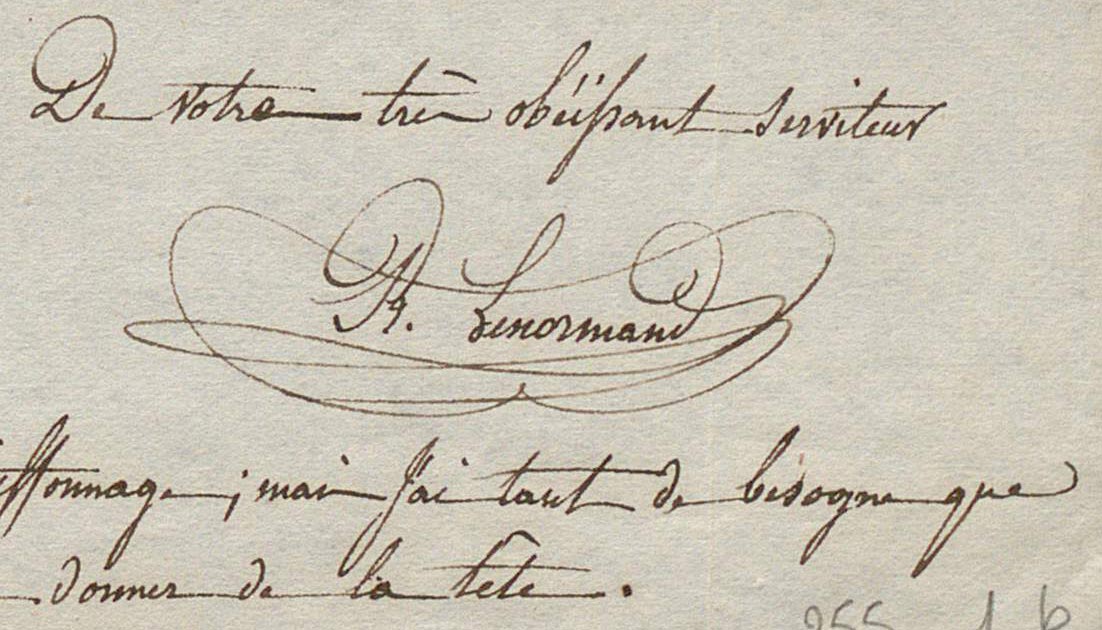 De votre très obéissant serviteur
R. Lenormand
iffonnage ; mais j'ai tant de besogne que
donner de la tête.
255 1 b